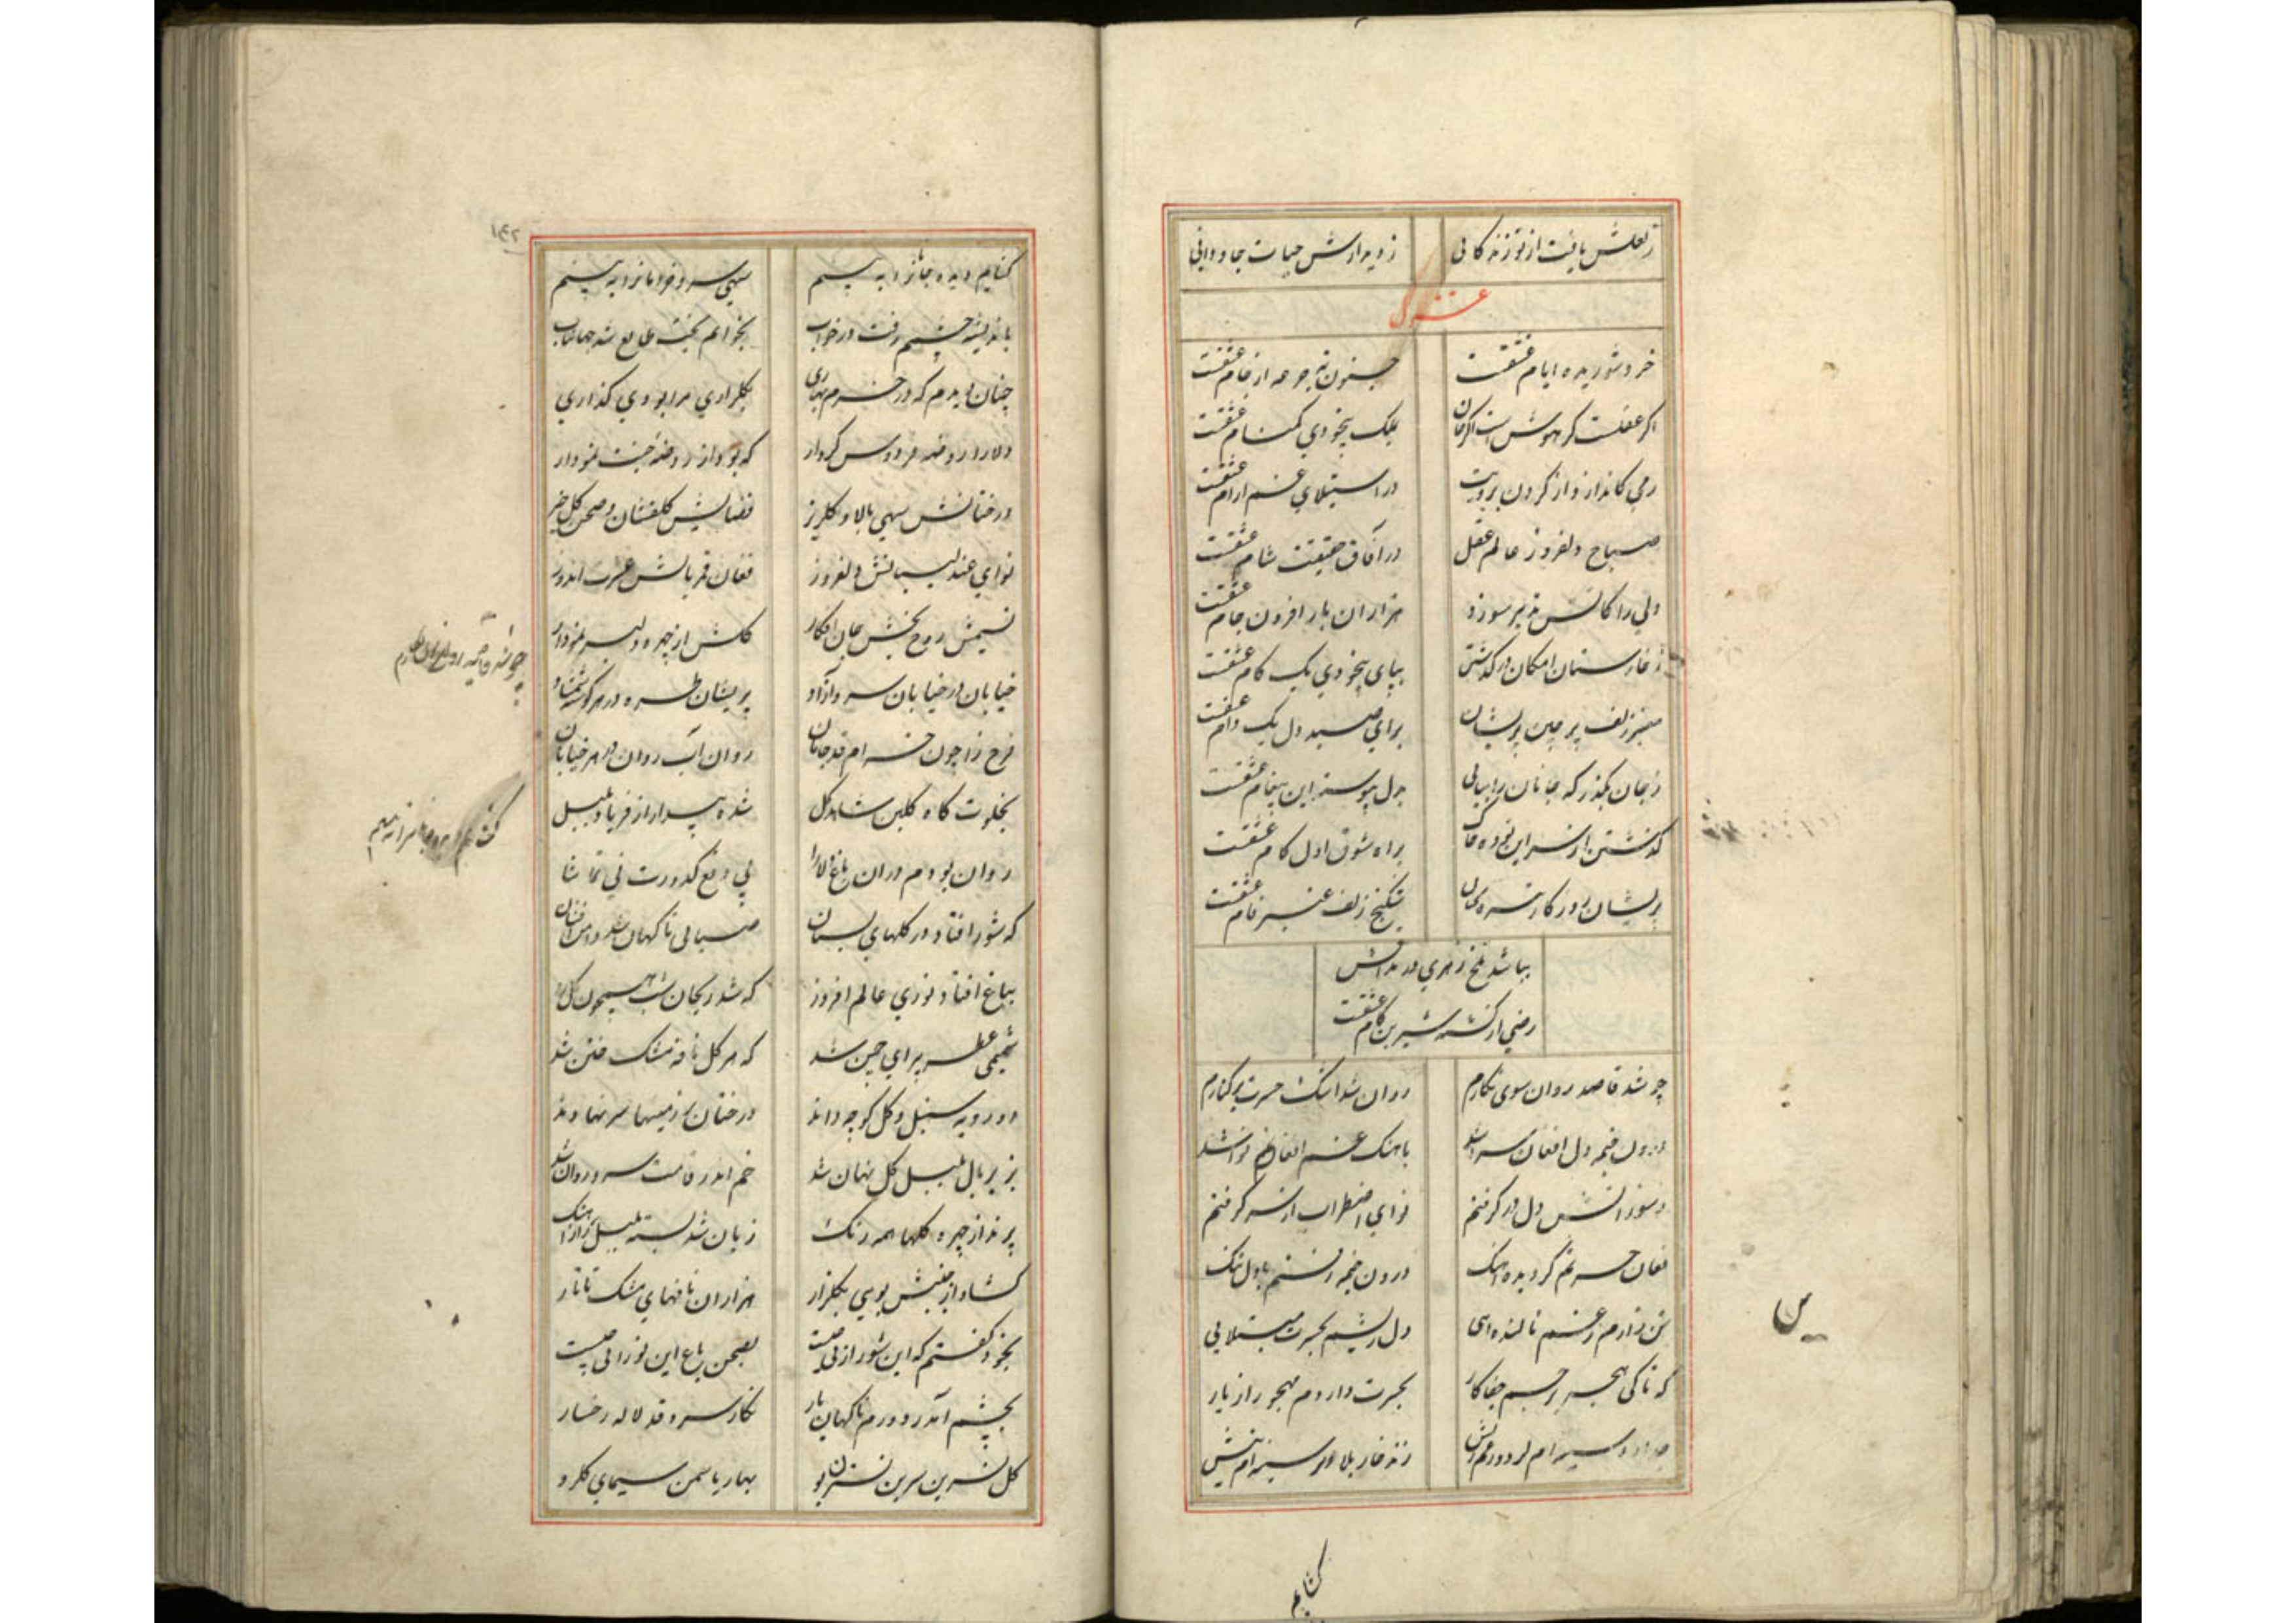 ز لعلش یافت از تو زندگانی ز دیدارش حیات جاودانی
غزل
خرد شوریده ایام عشقست جنون ته جرعه از جام عشقست
اگر عقلست گر هوش است اگر جان بیک بیخودی گمنام عشقست
در استیلای غم آرام عشقست
صباح دلفروز عالم عقل در آفاق حقیقت شام عشقست
ولی را کاتش تدبیر سوزد هزاران بار افزون خام عشقست
ز خارستان امکان درگذشتن بپای بیخودی یک گام عشقست
مبین زلف پر چین پریشان برای صید دل یک دام عشقست
ز جان بگذر که جانان را بیابی بدل پیوسته این پیغام عشقست
گذشتن از سر این توده خاک براه شوق اول گام عشقست
پریشان روزگار تیره شکنج زلف عنبر فام عشقست
نباشد تلخ زهری در مذاقش
رضی از کشته شیرین کام عشقست
چو شد قاصد روان سوی نگارم روان شد اشک حسرت بر کنارم
درون خیمه دل افغان سرا شد باهنگ غم افغان نوا شد
ز سوز آتش دل در گرفتم نوای اضطراب از سر گرفتم
فغان حسرتم گردیده آهنگ درون خیمه رفتم با دل تنگ
تن زارم ز غم نالنده دل ریشم بحسرت مبتلایی
که تا کی هجر بیرحم جفاکار بحسرت داردم مهجور از یار
زند خار بلا بر سینه ام نیش
گشایم
س
گشایم دیده جانرا به بینم سهی سرو خرامانرا به بینم
باندیشه چشمم رفت در خواب بخوابم بخت طالع شد جهانتاب
چنان دیدم که در خرم بهاری بگلزاری مرا بودی گذاری
دلارا روضه فردوس کردار که بود از روضه جنت نمودار
درختانش سهی بالا و گلریز فضایش گلفشان و صحن گل خیز
نوای عندلیبانش دلفروز فغان قمریانش عشرت اندوز
نسیمش روح بخش جان افکار گلش از چهره دلبر نمودار
خیابان در خیابان سرو آزاد پریشان طره در هر گوشه شمشاد
فرح زا چون خرام قد جانان روان آب روان در هر خیابان
بخلوت گاه گلبن شاهد گل شده بیدار از فریاد بلبل
روان بودم در آن باغ دلارا پی دفع کدورت نی تماشا
که شور افتاد در گلهای بستان صبایی ناگهان شد دامن افشان
بباغ افتاد نوری عالم افروز که شد ریحان شب همچون گل روز
شمیمی عطر پیرای چمن شد که هر گل نافه مشک ختن شد
دو رویه سنبل و گل کوچه دادند درختان بر زمینها سر نهادند
بزیر بال بلبل گل نهان شد خم اندر قامت سرو روان شد
پرید از چهره گلها همه رنگ زبان شد بسته بلبل را ز آهنگ
گشاد از جنبش بویی بگلزار هزاران نافهای مشک تاتار
بخود گفتم که این شور از پی چیست بصحن باغ این نور از پی چیست
بچشم آمد ز دورم ناگهان یار نگار سرو قد لاله رخسار
گل نسرین سرین نسترن بو بهار یاسمن سیمای گلرو
چو شد قاصد روان سوی نگارم
۱۴۲